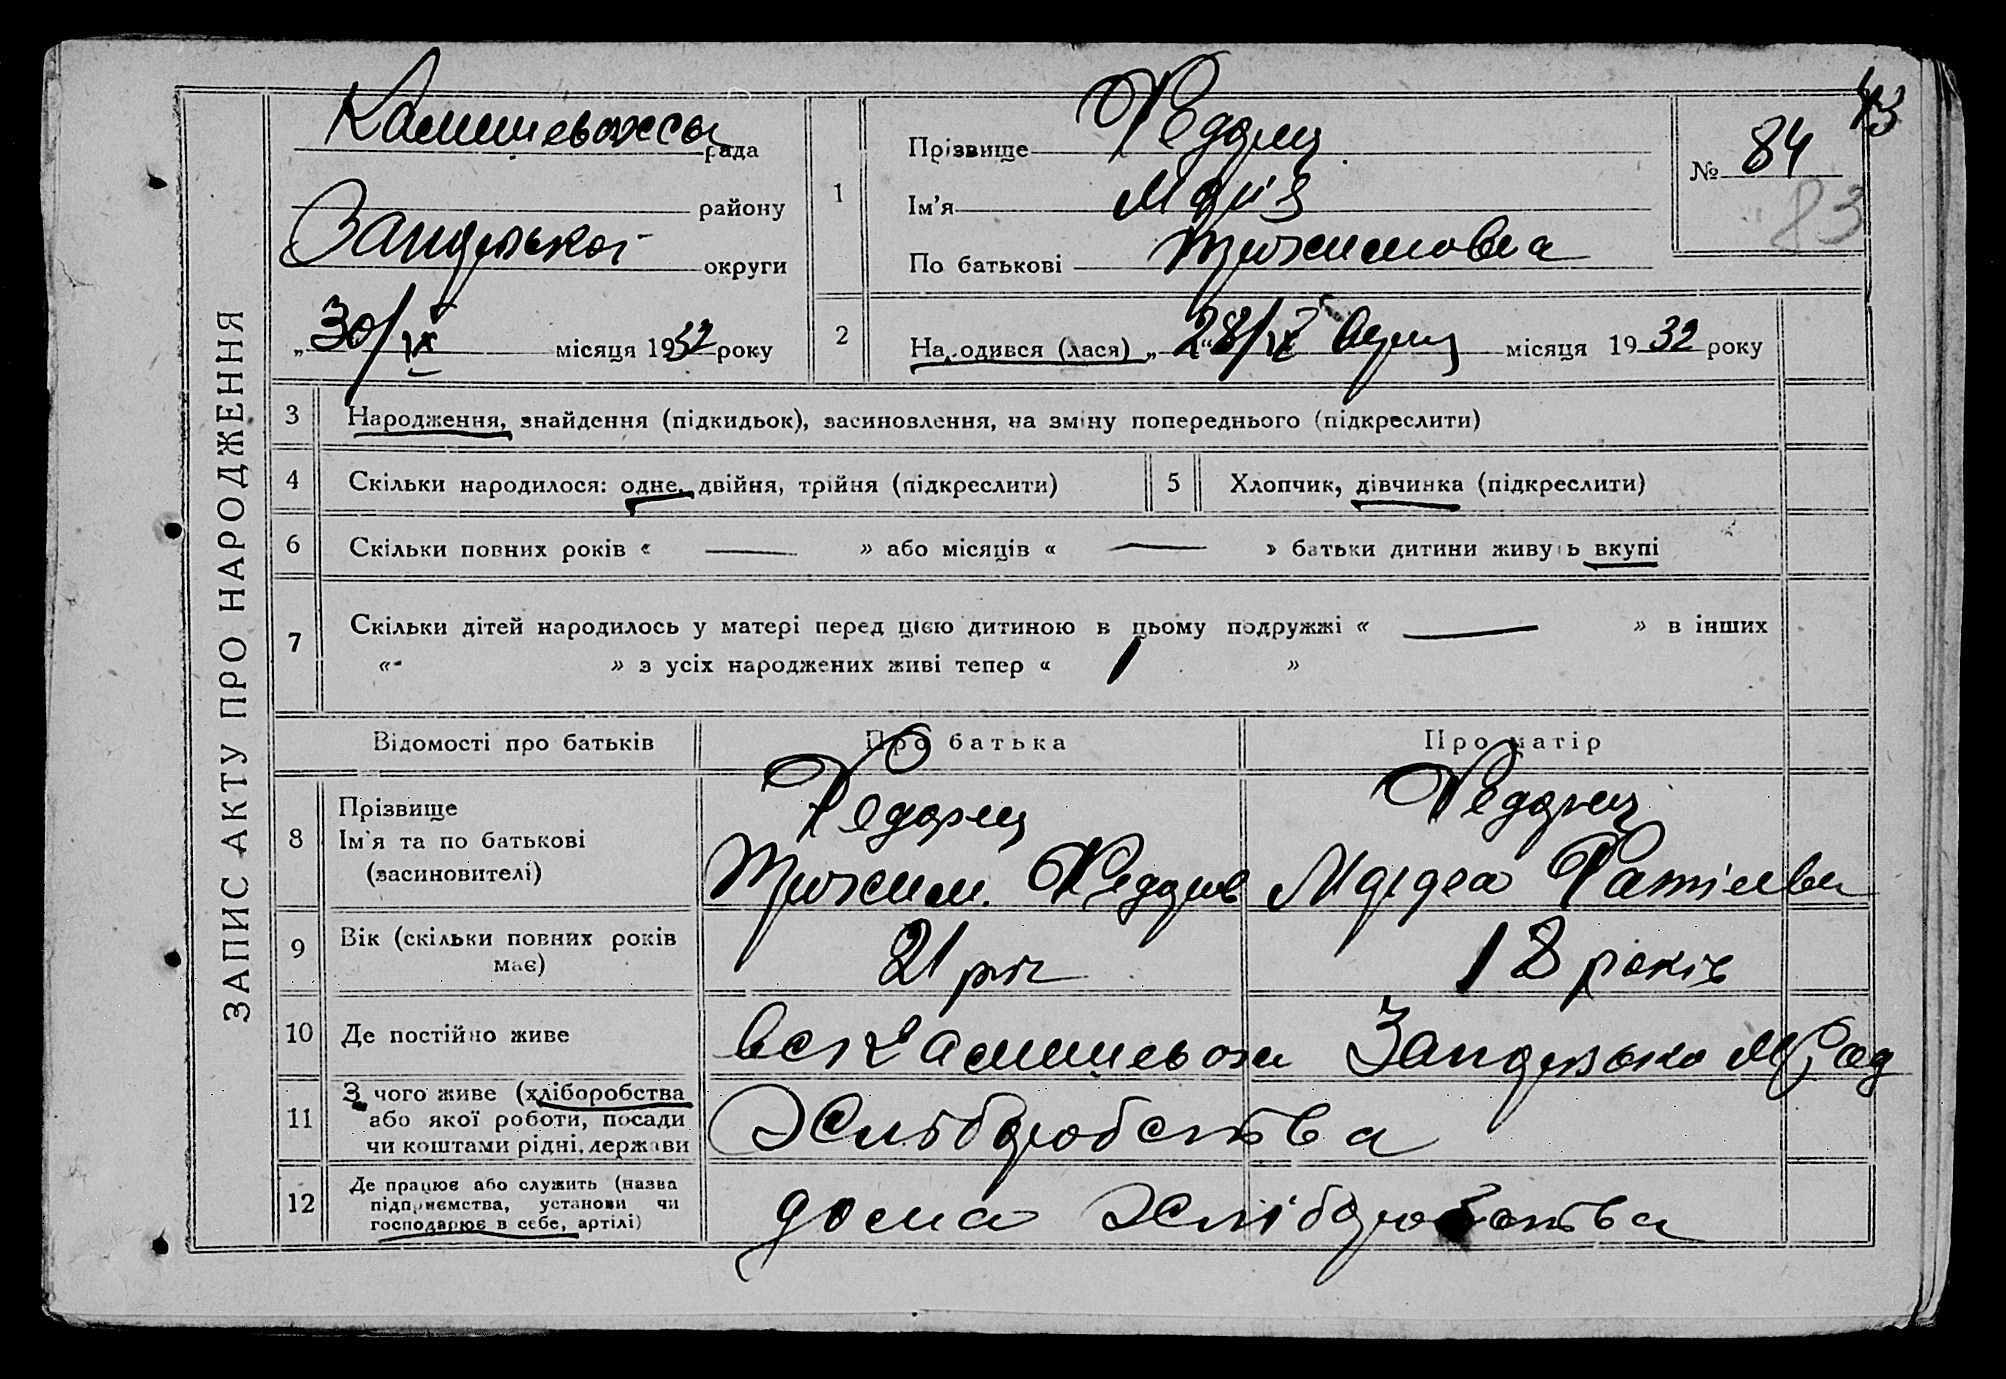 ЗАПИС АКТУ ПРО НАРОДЖЕННЯ
рада
району
округи
„ 30/IX місяця 1932 року
1
Прізвище Федорец
Ім'я Марія
По батькові
№ 84
83
2
Народився (лася) „ 28/IX місяця 1932 року
3 Народження, знайдення (підкидьок), засиновлення, на зміну попереднього (підкреслити)
4 Скільки народилося: одне, двійня, трійня (підкреслити)
5 Хлопчик, дівчинка (підкреслити)
6 Скільки повних років « — » або місяців « — » батьки дитини живуть вкупі
7 Скільки дітей народилось у матері перед цією дитиною в цьому подружжі « — » в інших
«- » з усіх народжених живі тепер « 1 »
Відомості про батьків Про батька Про матір
8 Прізвище
Ім'я та по батькові
(засиновителі)
Федорец Федорец
9 Вік (скільки повних років
має)
21 рік 18 років
10 Де постійно живе
11 З чого живе (хліборобства
або якої роботи, посади
чи коштами рідні, держави
Хліборобства
12 Де працює або служить (назва
підприємства, установи чи
господарює в себе, артілі)
дома Хліборобства